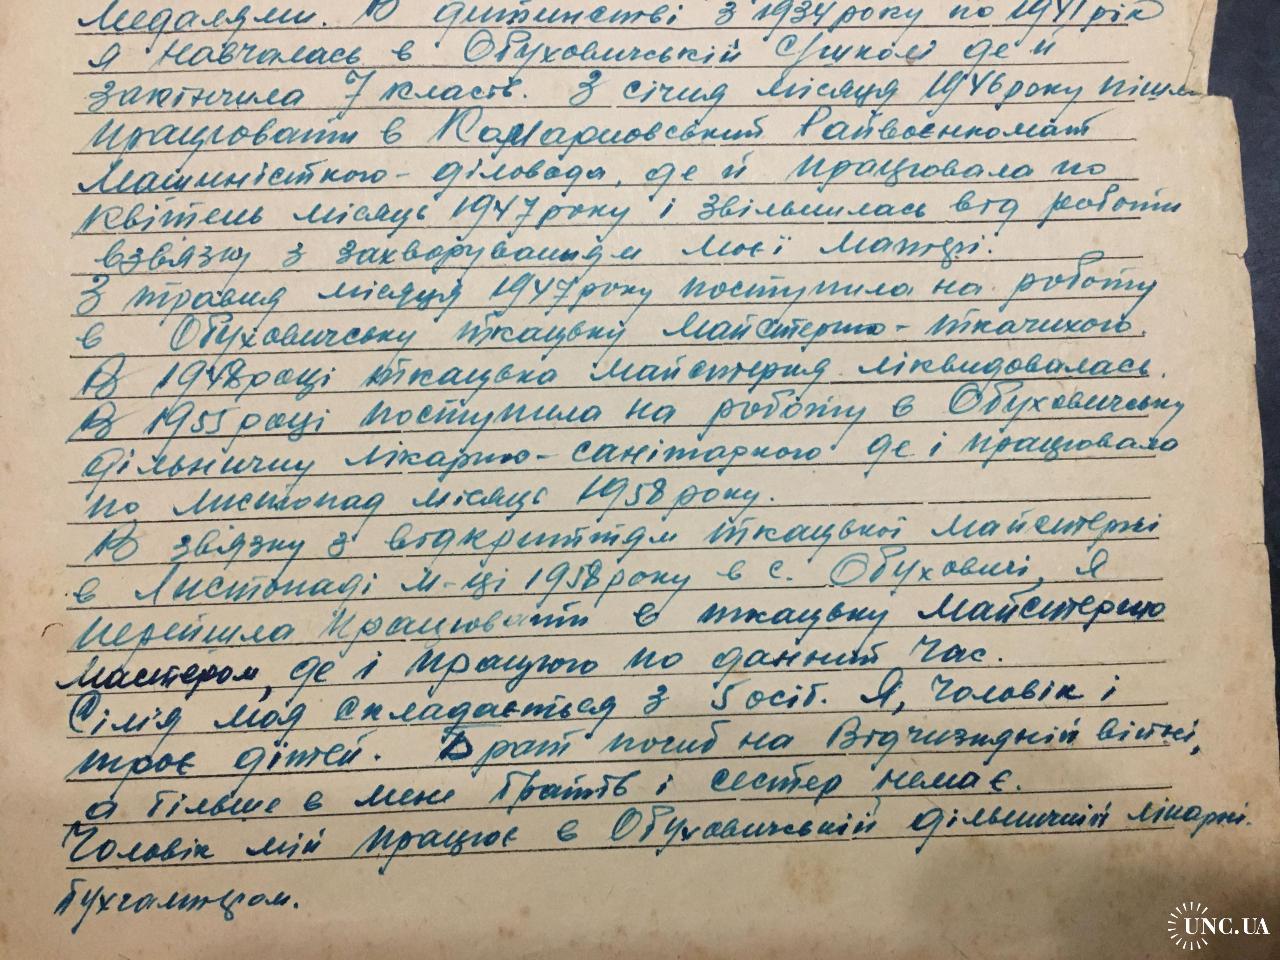 медалями. В дитинстві з 1934 року по 1941 рік
я навчалась в Обуховичській школі де й
закінчила 7 класів. З січня місяця 1946 року пішла
працювати в Комарновський Райвоєнкомат
машиністкою-діловода, де й працювала по
квітень місяць 1947 року і звільнилась від роботи
взвязку з захворуванням моєї матері.
З травня місяця 1947 року поступила на роботу
в Обуховичську ткацьку майстерню - ткачихою.
В 1948 році ткацька майстерня ліквидовалась.
В 1955 році поступила на роботу в Обуховичську
дільничну лікарню - санітаркою де і працювала
по листопад місяць 1958 року.
В звязку з відкриттям ткацької майстерні
в листопаді м-ці 1958 року в с. Обуховичі, я
перейшла працювати в ткацьку майстерню
мастером, де і працюю по данний час.
Сімія моя складається з 5 осіб. Я, чоловік і
троє дітей. Брат погиб на Відчизняній війні,
а більше в мене братів і сестер немає.
Чоловік мій працює в Обуховичській дільничній лікарні.
бухгалтером.
UNC.UA